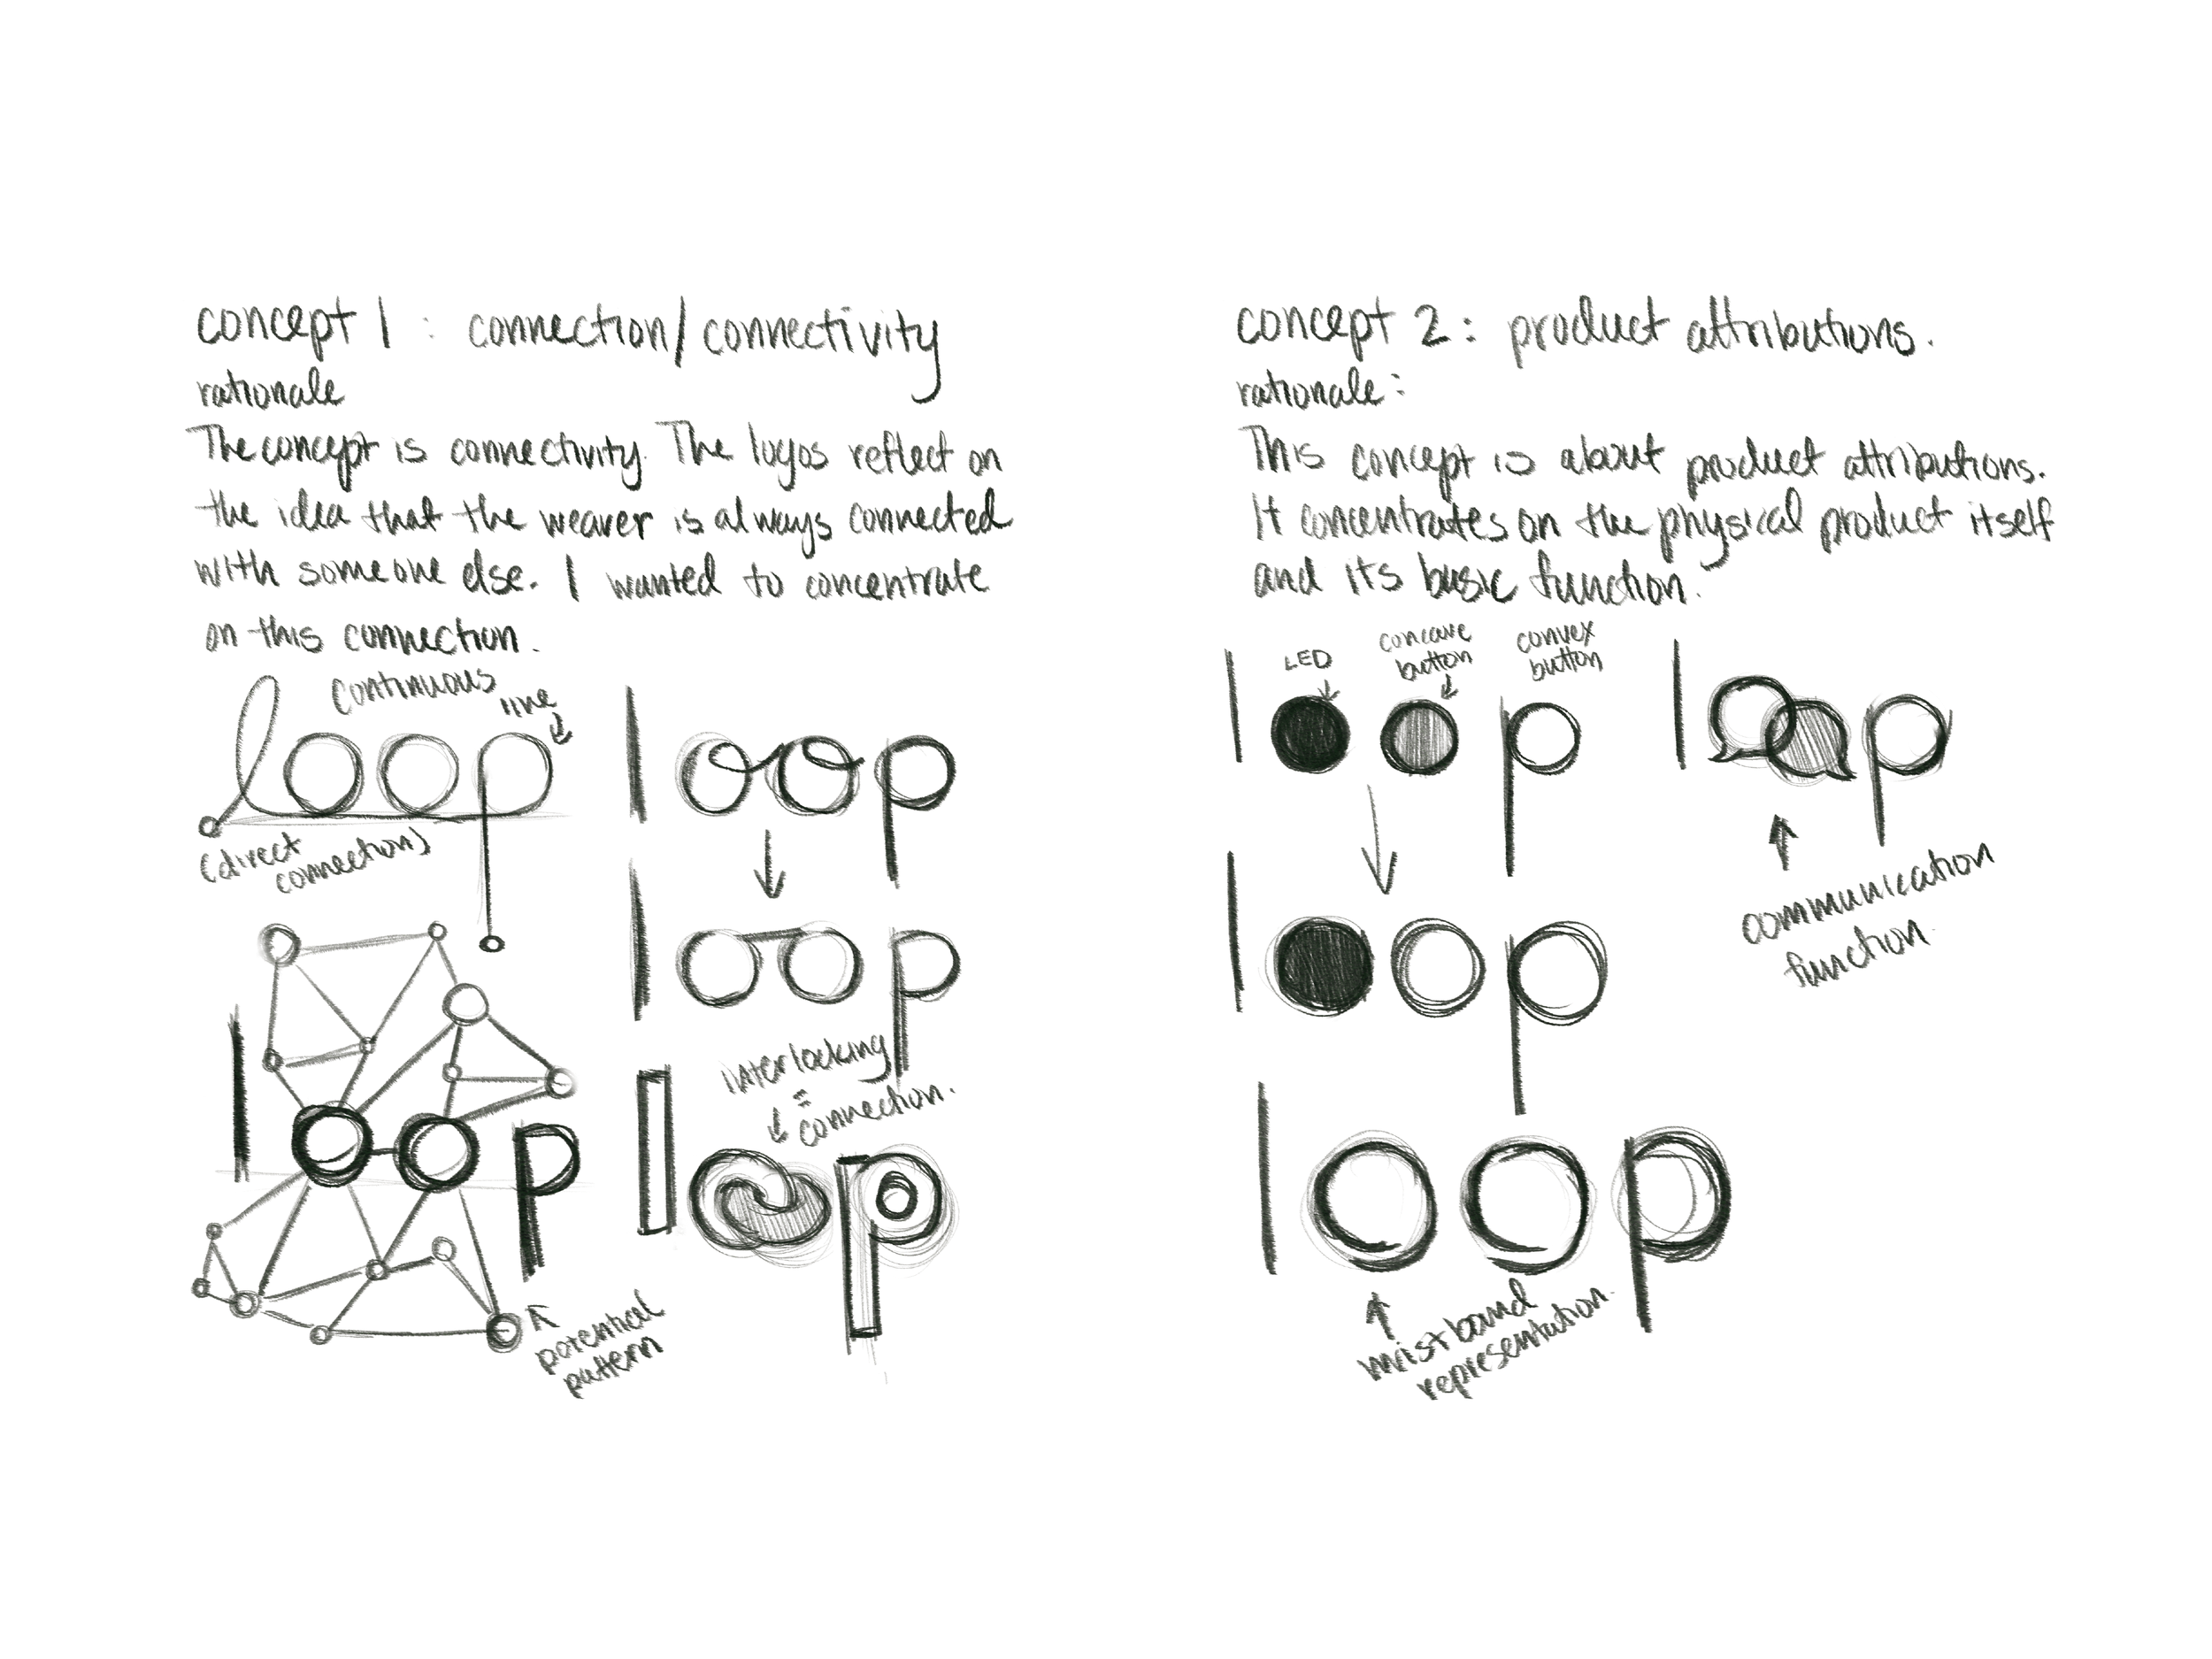 concept 1 : connection/connectivity
rationale
The concept is connectivity. The logos reflect on
the idea that the wearer is always connected
with someone else. I wanted to concentrate
on this connection.
continuous
line
loop
(direct
connection)
loop
loop
loop
potential
pattern
interlocking
=
connection.
loop
concept 2: product attributions.
rationale:
This concept is about product attributions.
It concentrates on the physical product itself
and its basic function.
LED
concave
button
convex
button
loop
loop
communication
function.
loop
loop
wristband
representation.